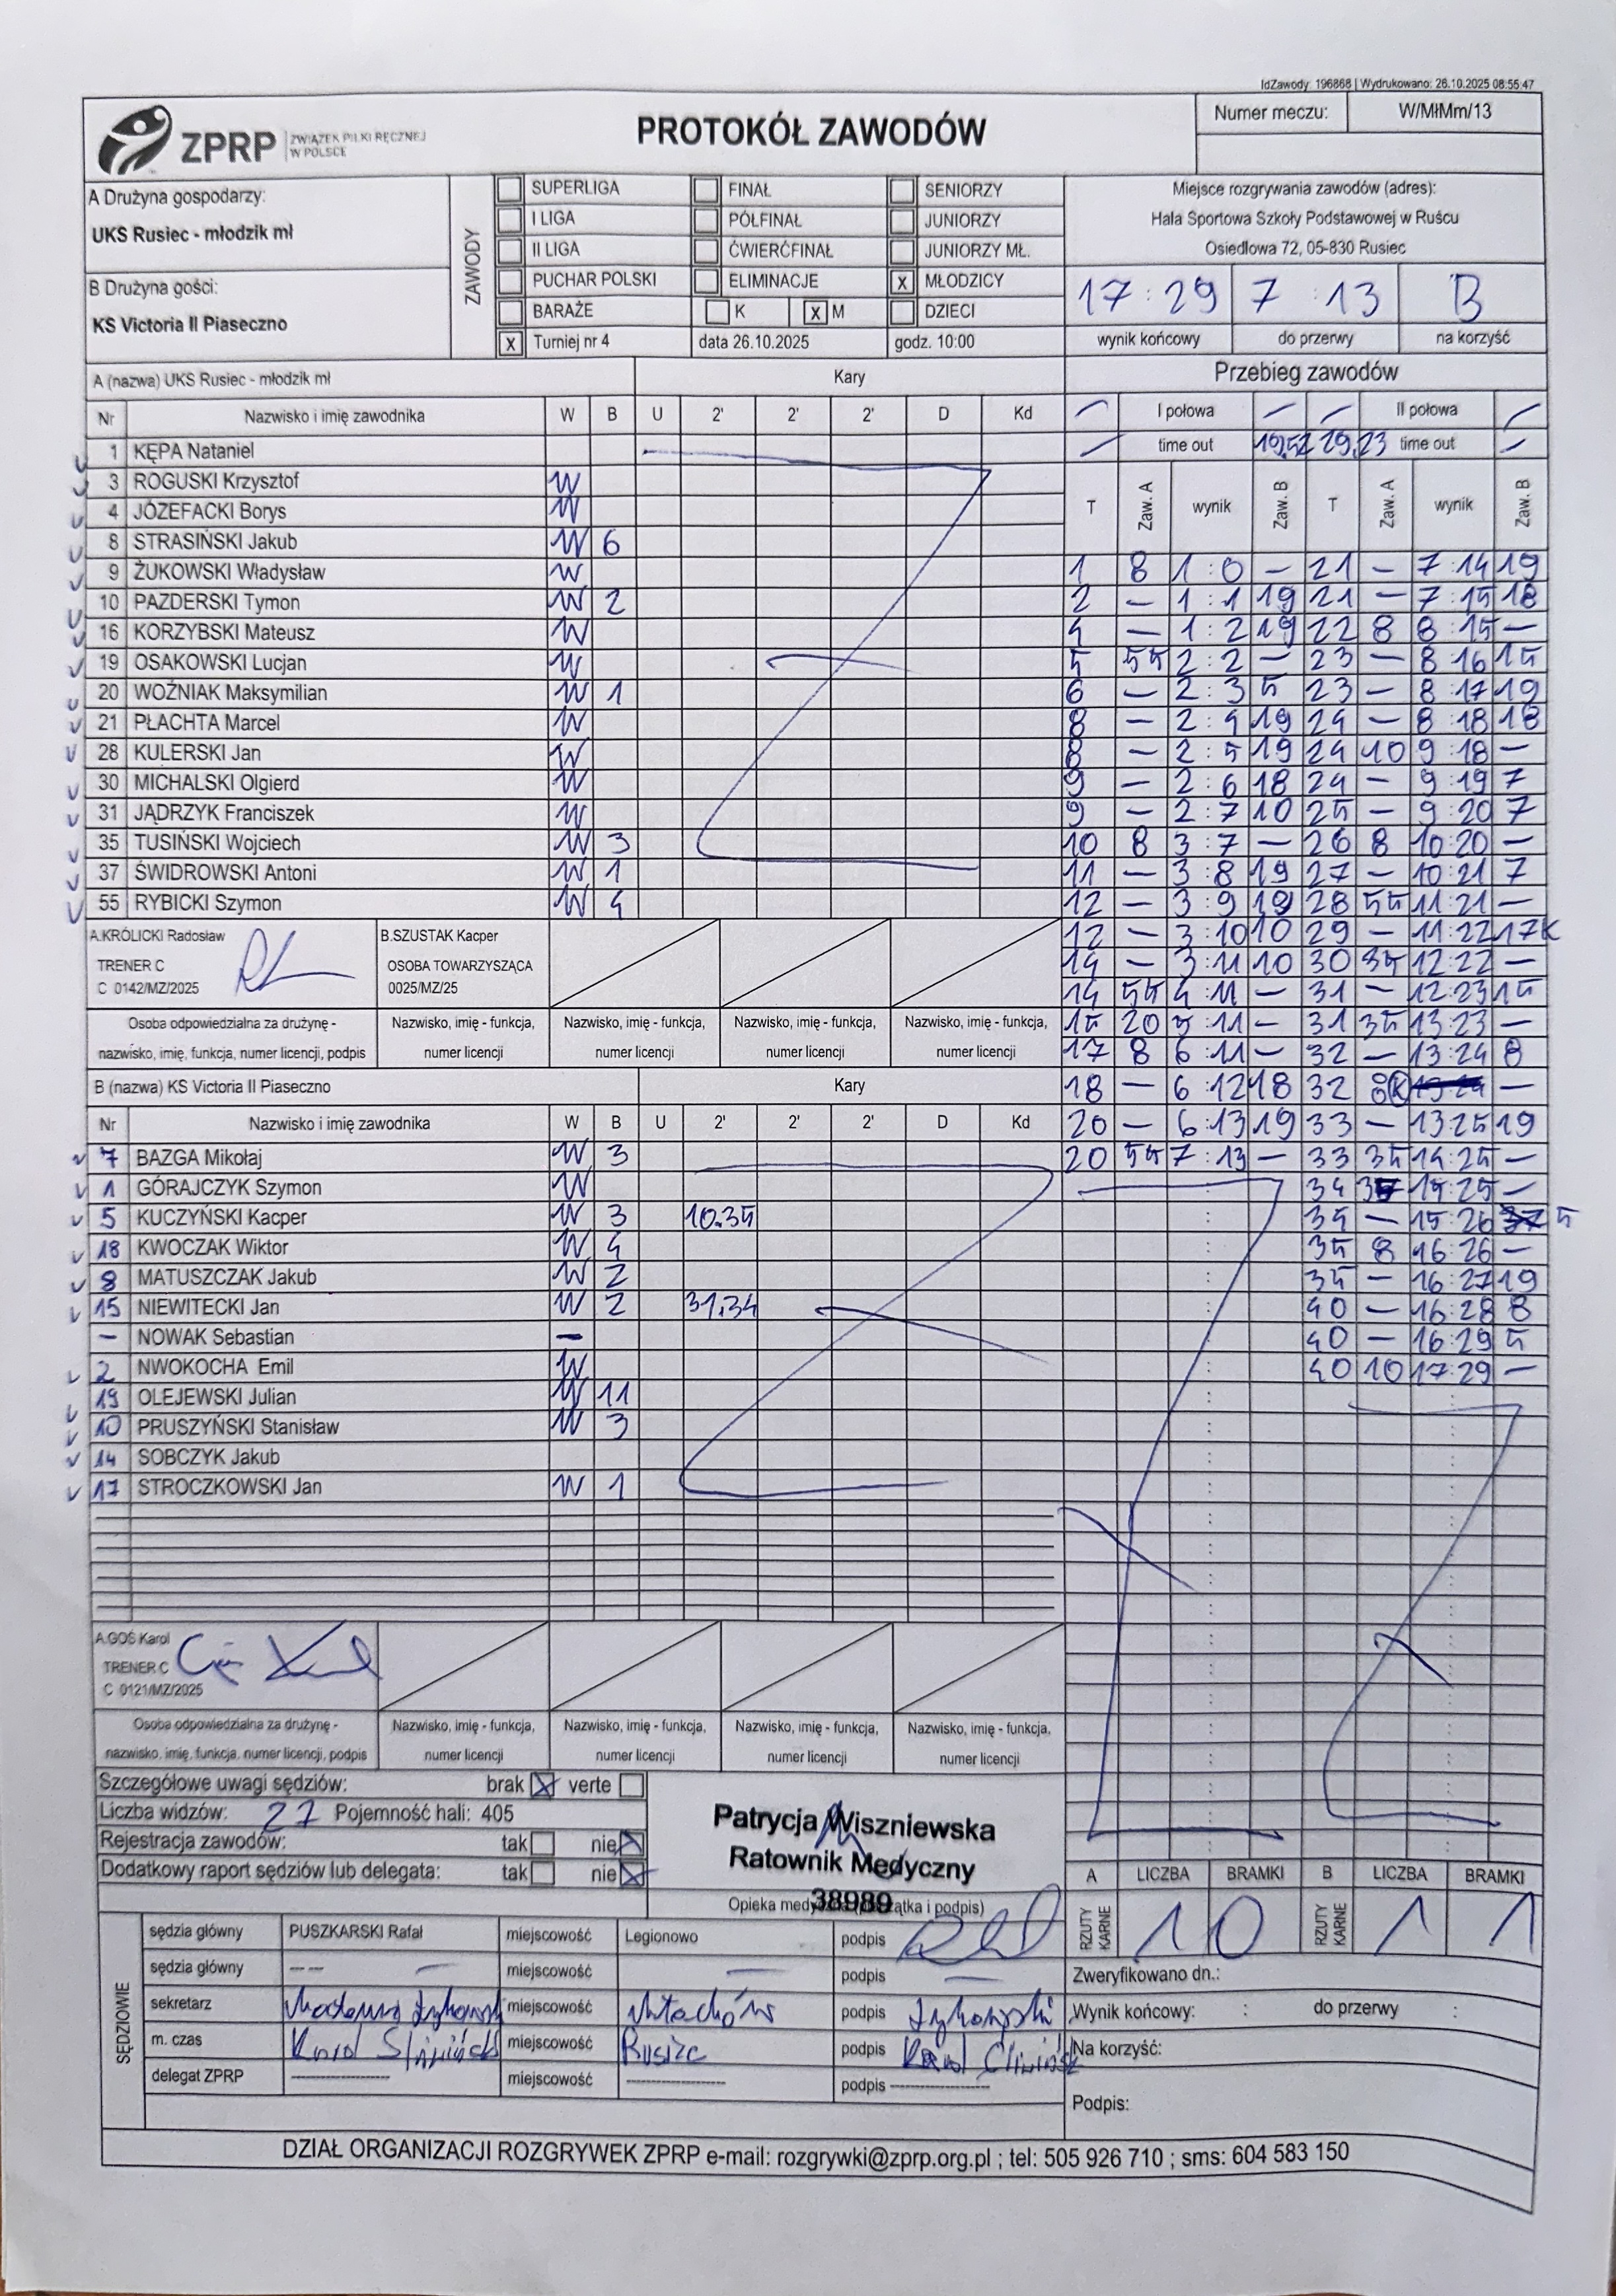 IdZawody: 196868 | Wydrukowano: 26.10.2025 08:55:47
ZPRP ZWIĄZEK PIŁKI RĘCZNEJ W POLSCE
PROTOKÓŁ ZAWODÓW
Numer meczu: W/MłMm/13
A Drużyna gospodarzy:
UKS Rusiec - młodzik mł
B Drużyna gości:
KS Victoria II Piaseczno
ZAWODY
SUPERLIGA FINAŁ SENIORZY
I LIGA PÓŁFINAŁ JUNIORZY
II LIGA ĆWIERĆFINAŁ JUNIORZY MŁ.
PUCHAR POLSKI ELIMINACJE X MŁODZICY
BARAŻE K X M DZIECI
X Turniej nr 4 data 26.10.2025 godz. 10:00
Miejsce rozgrywania zawodów (adres):
Hala Sportowa Szkoły Podstawowej w Ruścu
Osiedlowa 72, 05-830 Rusiec
17 : 29 7 : 13 B
wynik końcowy do przerwy na korzyść
A (nazwa) UKS Rusiec - młodzik mł Kary
Nr Nazwisko i imię zawodnika W B U 2' 2' 2' D Kd
1 KĘPA Nataniel
3 ROGUSKI Krzysztof W
4 JÓZEFACKI Borys W
8 STRASIŃSKI Jakub W 6
9 ŻUKOWSKI Władysław W
10 PAZDERSKI Tymon W 2
16 KORZYBSKI Mateusz W
19 OSAKOWSKI Lucjan W
20 WOŹNIAK Maksymilian W 1
21 PŁACHTA Marcel W
28 KULERSKI Jan W
30 MICHALSKI Olgierd W
31 JĄDRZYK Franciszek W
35 TUSIŃSKI Wojciech W 3
37 ŚWIDROWSKI Antoni W 1
55 RYBICKI Szymon W 4
A.KRÓLICKI Radosław
TRENER C
C 0142/MZ/2025
B.SZUSTAK Kacper
OSOBA TOWARZYSZĄCA
0025/MZ/25
Osoba odpowiedzialna za drużynę - Nazwisko, imię - funkcja, Nazwisko, imię - funkcja, Nazwisko, imię - funkcja, Nazwisko, imię - funkcja,
nazwisko, imię, funkcja, numer licencji, podpis numer licencji numer licencji numer licencji numer licencji
B (nazwa) KS Victoria II Piaseczno Kary
Nr Nazwisko i imię zawodnika W B U 2' 2' 2' D Kd
7 BAZGA Mikołaj W 3
1 GÓRAJCZYK Szymon W
5 KUCZYŃSKI Kacper W 3 10.35
18 KWOCZAK Wiktor W 4
8 MATUSZCZAK Jakub W 2
15 NIEWITECKI Jan W 2 31.34
- NOWAK Sebastian -
2 NWOKOCHA Emil W
19 OLEJEWSKI Julian W 11
10 PRUSZYŃSKI Stanisław W 3
14 SOBCZYK Jakub
17 STROCZKOWSKI Jan W 1
A.GOŚ Karol
TRENER C
C 0121/MZ/2025
Osoba odpowiedzialna za drużynę - Nazwisko, imię - funkcja, Nazwisko, imię - funkcja, Nazwisko, imię - funkcja, Nazwisko, imię - funkcja,
nazwisko, imię, funkcja, numer licencji, podpis numer licencji numer licencji numer licencji numer licencji
Przebieg zawodów
I połowa II połowa
time out 19,52 29,23 time out
T Zaw. A wynik Zaw. B T Zaw. A wynik Zaw. B
1 8 1 : 0 - 21 - 7 : 14 19
2 - 1 : 1 19 21 - 7 : 15 18
4 - 1 : 2 19 22 8 8 : 15 -
5 55 2 : 2 - 23 - 8 : 16 15
6 - 2 : 3 5 23 - 8 : 17 19
8 - 2 : 4 19 24 - 8 : 18 18
8 - 2 : 5 19 24 10 9 : 18 -
9 - 2 : 6 18 24 - 9 : 19 7
9 - 2 : 7 10 25 - 9 : 20 7
10 8 3 : 7 - 26 8 10 : 20 -
11 - 3 : 8 19 27 - 10 : 21 7
12 - 3 : 9 19 28 55 11 : 21 -
12 - 3 : 10 10 29 - 11 : 22 17K
14 - 3 : 11 10 30 35 12 : 22 -
14 55 4 : 11 - 31 - 12 : 23 15
15 20 5 : 11 - 31 35 13 : 23 -
17 8 6 : 11 - 32 - 13 : 24 8
18 - 6 : 12 18 32 8K -
20 - 6 : 13 19 33 - 13 : 25 19
20 55 7 : 13 - 33 35 14 : 25 -
34 37 15 : 25 -
35 - 15 : 26 5
35 8 16 : 26 -
35 - 16 : 27 19
40 - 16 : 28 8
40 - 16 : 29 5
40 10 17 : 29 -
Szczegółowe uwagi sędziów: brak X verte
Liczba widzów: 27 Pojemność hali: 405
Rejestracja zawodów: tak nie X
Dodatkowy raport sędziów lub delegata: tak nie X
Patrycja Wiszniewska
Ratownik Medyczny
38989
Opieka medyczna (pieczątka i podpis)
A LICZBA BRAMKI B LICZBA BRAMKI
RZUTY KARNE 1 0 RZUTY KARNE 1 1
SĘDZIOWIE
sędzia główny PUSZKARSKI Rafał miejscowość Legionowo podpis
sędzia główny --- miejscowość - podpis -
sekretarz miejscowość podpis
m. czas Karol Śliwiński miejscowość Rusiec podpis Karol Śliwiński
delegat ZPRP ---------- miejscowość ---------- podpis ----------
Zweryfikowano dn.:
Wynik końcowy: : do przerwy :
Na korzyść:
Podpis:
DZIAŁ ORGANIZACJI ROZGRYWEK ZPRP e-mail: rozgrywki@zprp.org.pl ; tel: 505 926 710 ; sms: 604 583 150